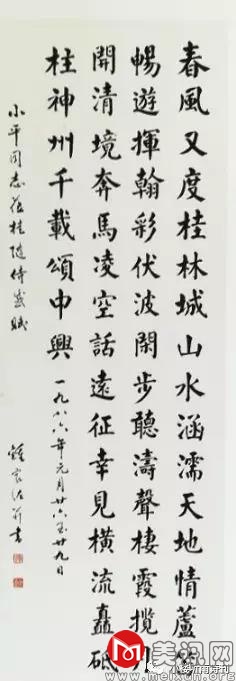 春風又度桂林城山水涵濡天地情蘆笛
暢遊揮翰彩伏波閑步聽濤聲棲霞攬
開清境奔馬凌空話遠征幸見橫流矗砥
柱神州千載頌中興
一九八六年元月廿六至廿九日
小平同志蒞桂隨侍感賦
鍾家佐并書
美讯网
www.meixun.org